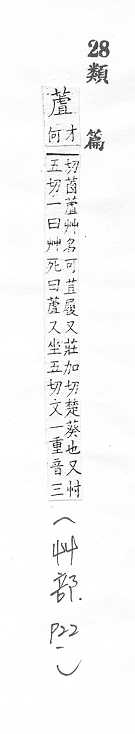 28
類篇
蔖才何
切菌蔖艸名可苴履又莊加切楚葵也又忖
五切一曰艸死曰蔖又坐五切文一重音三
(艸部 P22)